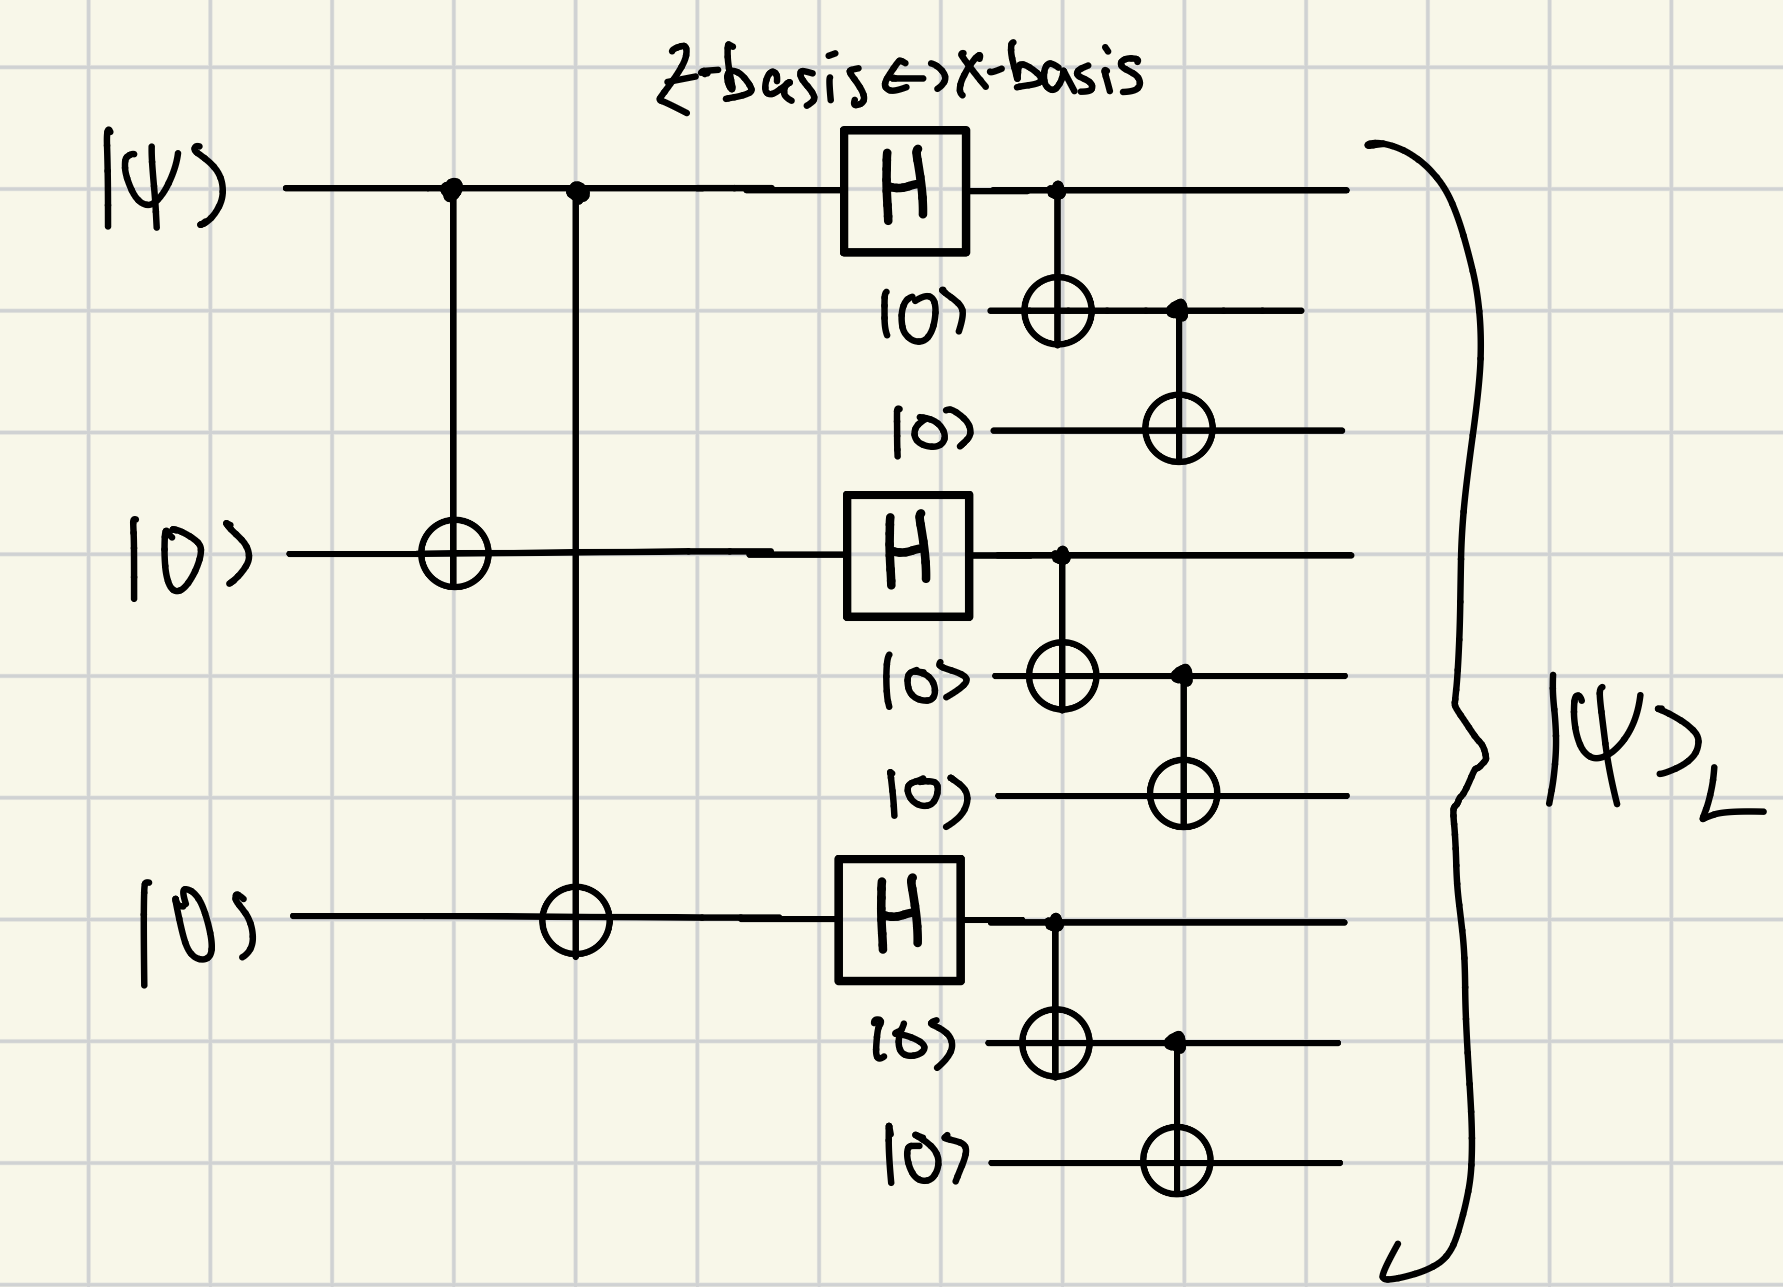 Z-basis ↔ X-basis
|ψ⟩
H
|0⟩
|0⟩
|0⟩
H
|0⟩
|0⟩
|ψ⟩_L
|0⟩
H
|0⟩
|0⟩